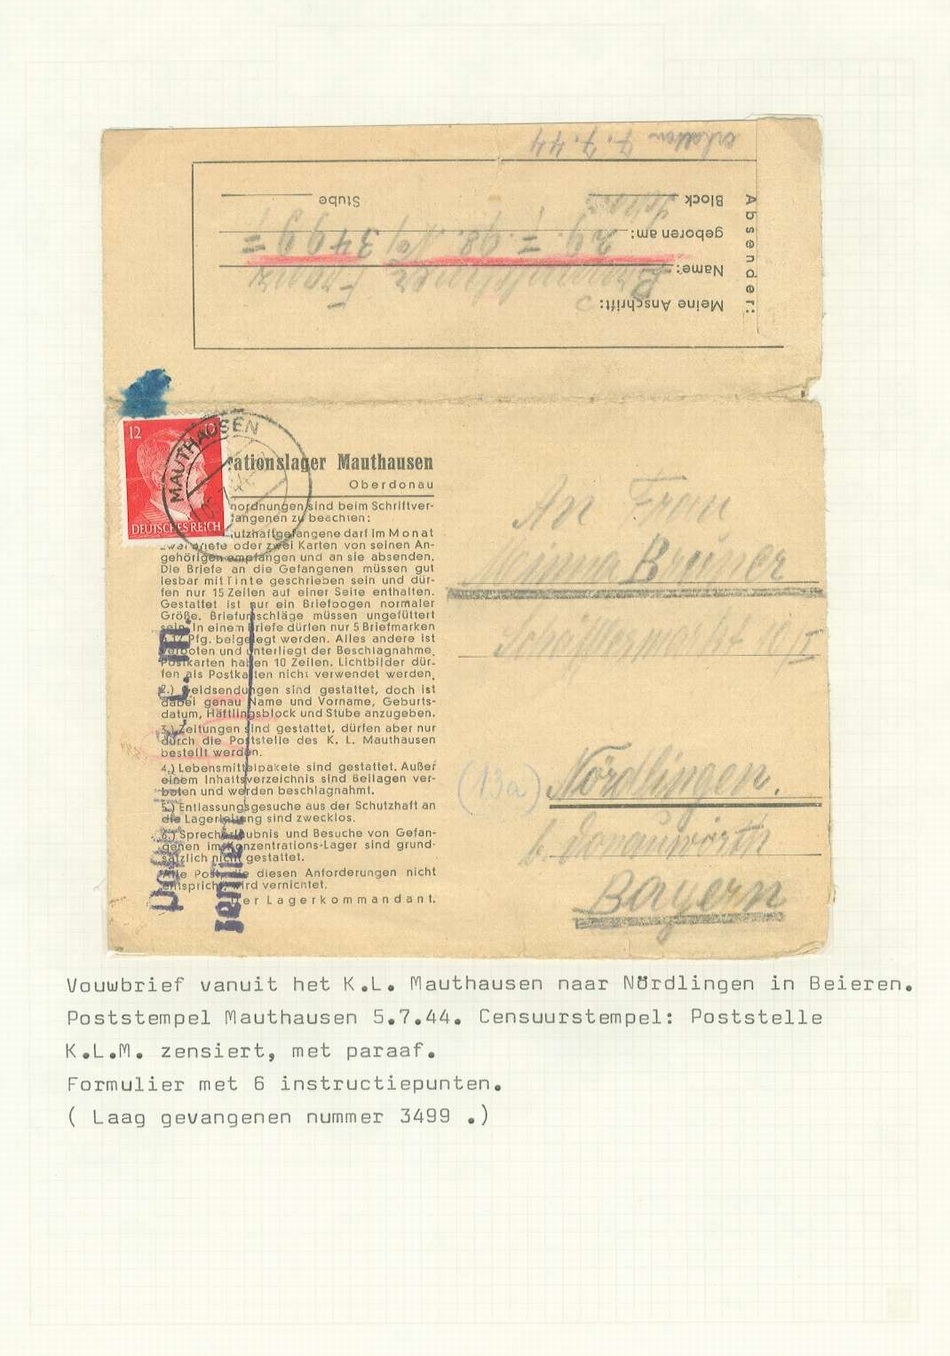 erhalten 7.7.44
Absender:
Meine Anschrift:
Name: Franz
geboren am: 29. 7. 98. No 3499=
Block
Stube
12
DEUTSCHES REICH
MAUTHAUSEN
rationslager Mauthausen
Oberdonau
nordnungen sind beim Schriftver-
fangenen zu beachten:
utzhaftgefangene darf im Monat
zwei Briefe oder zwei Karten von seinen An-
gehörigen empfangen und an sie absenden.
Die Briefe an die Gefangenen müssen gut
lesbar mit Tinte geschrieben sein und dür-
fen nur 15 Zeilen auf einer Seite enthalten.
Gestattet ist nur ein Briefbogen normaler
Größe. Briefumschläge müssen ungefüttert
sein. In einem Briefe dürfen nur 5 Briefmarken
Pfg. beigelegt werden. Alles andere ist
verboten und unterliegt der Beschlagnahme.
Postkarten haben 10 Zeilen. Lichtbilder dür-
fen als Postkarten nicht verwendet werden.
2.) Geldsendungen sind gestattet, doch ist
dabei genau Name und Vorname, Geburts-
datum, Häftlingsblock und Stube anzugeben.
3.) Zeitungen sind gestattet, dürfen aber nur
durch die Poststelle des K. L. Mauthausen
bestellt werden.
4.) Lebensmittelpakete sind gestattet. Außer
einem Inhaltsverzeichnis sind Beilagen ver-
boten und werden beschlagnahmt.
5.) Entlassungsgesuche aus der Schutzhaft an
die Lagerleitung sind zwecklos.
6.) Sprecherlaubnis und Besuche von Gefan-
genen im Konzentrations-Lager sind grund-
sätzlich nicht gestattet.
Alle Post, die diesen Anforderungen nicht
entspricht, wird vernichtet.
Der Lagerkommandant.
Poststelle K. L. M.
zensiert
An Frau
Brunner
10/I
(13a) Nördlingen.
b. Donauwörth
Bayern
Vouwbrief vanuit het K.L. Mauthausen naar Nördlingen in Beieren.
Poststempel Mauthausen 5.7.44. Censuurstempel: Poststelle
K.L.M. zensiert, met paraaf.
Formulier met 6 instructiepunten.
( Laag gevangenen nummer 3499 .)